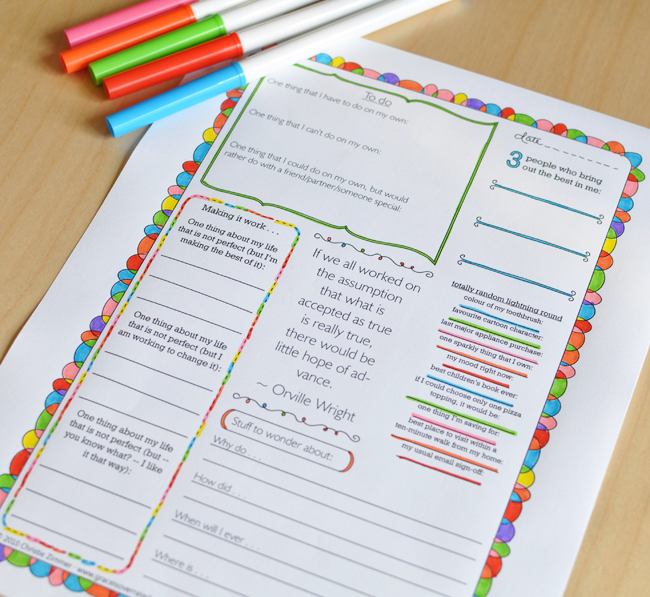 To do
One thing that I have to do on my own:
One thing that I can't do on my own:
One thing that I could do on my own, but would
rather do with a friend/partner/someone special:
date
3 people who bring
out the best in me:
Making it work . . .
One thing about my life
that is not perfect (but I'm
making the best of it):
One thing about my life
that is not perfect (but I
am working to change it):
One thing about my life
that is not perfect (but --
you know what? -- I like
it that way):
If we all worked on
the assumption
that what is
accepted as true
is really true,
there would be
little hope of ad-
vance.
~ Orville Wright
totally random lightning round
colour of my toothbrush:
favourite cartoon character:
last major appliance purchase:
one sparkly thing that I own:
my mood right now:
best children's book ever:
if I could choose only one pizza
topping, it would be:
one thing I'm saving for:
best place to visit within a
ten-minute walk from my home:
my usual email sign-off:
Stuff to wonder about:
Why do . . .
How did . . .
When will I ever . . .
Where is . . .
Christie Zimmer